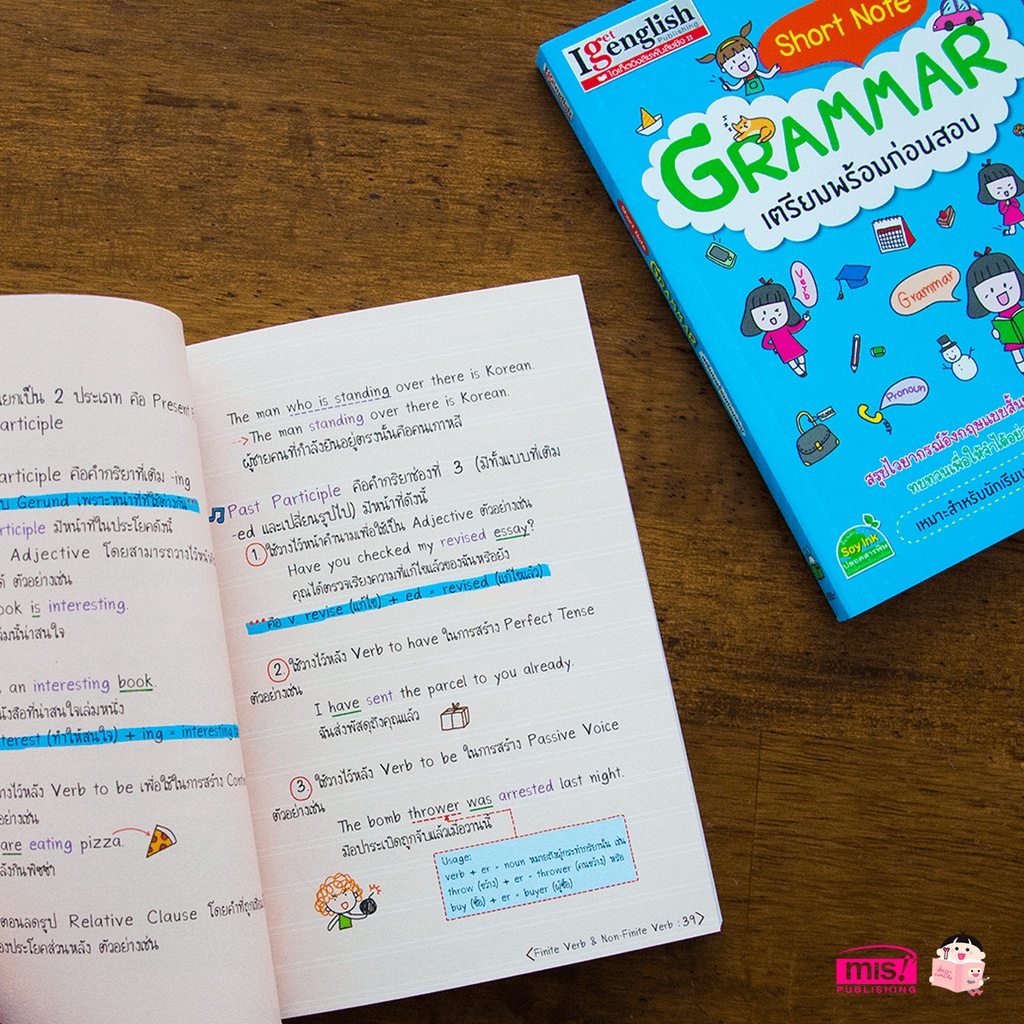 I get english
Publishing
Short Note
GRAMMAR
เตรียมพร้อมก่อนสอบ
Verb
Grammar
Pronoun
Soy Ink
GRAMMAR
แยกเป็น 2 ประเภท คือ Present
articiple
articiple คือคำกริยาที่เติม -ing
บ Gerund เพราะหน้าที่ที่ใช้ต่างกัน
articiple มีหน้าที่ในประโยคดังนี้
Adjective โดยสามารถวางไว้หน้า
ด้ ตัวอย่างเช่น
ook is interesting.
ล่มนี้น่าสนใจ
an interesting book.
นังสือที่น่าสนใจเล่มหนึ่ง
terest (ทำให้สนใจ) + ing = interesting
วางไว้หลัง Verb to be เพื่อใช้ในการสร้าง Cont
อย่างเช่น
are eating pizza.
ลังกินพิซซ่า
ตอนลดรูป Relative Clause โดยคำที่ถูก
องประโยคส่วนหลัง ตัวอย่างเช่น
The man who is standing over there is Korean.
-->The man standing over there is Korean.
ผู้ชายคนที่กำลังยืนอยู่ตรงนั้นคือคนเกาหลี
Past Participle คือคำกริยาช่องที่ 3 (มีทั้งแบบที่เติม
-ed และเปลี่ยนรูปไป) มีหน้าที่ดังนี้
1 ใช้วางไว้หน้าคำนามเพื่อใช้เป็น Adjective ตัวอย่างเช่น
Have you checked my revised essay?
คุณได้ตรวจเรียงความที่แก้ไขแล้วของฉันหรือยัง
***คือ v. revise (แก้ไข) + ed = revised (แก้ไขแล้ว)
2 ใช้วางไว้หลัง Verb to have ในการสร้าง Perfect Tense
ตัวอย่างเช่น
I have sent the parcel to you already.
ฉันส่งพัสดุถึงคุณแล้ว
3 ใช้วางไว้หลัง Verb to be ในการสร้าง Passive Voice
ตัวอย่างเช่น
The bomb thrower was arrested last night.
มือปาระเบิดถูกจับแล้วเมื่อวานนี้
Usage:
verb + er = noun หมายถึงผู้กระทำกริยานั้น เช่น
throw (ขว้าง) + er = thrower (คนขว้าง) หรือ
buy (ซื้อ) + er = buyer (ผู้ซื้อ)
<Finite Verb & Non-Finite Verb : 39>
mis!
PUBLISHING